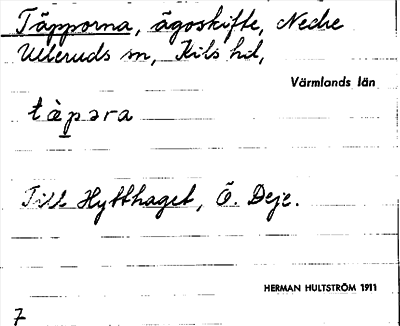 Täpporna, ägoskifte, Nedre
Ulleruds sn, Kils hd,
Värmlands län
tàp̲əra
Till Hytthaget, Ö. Deje.
HERMAN HULTSTRÖM 1911
7